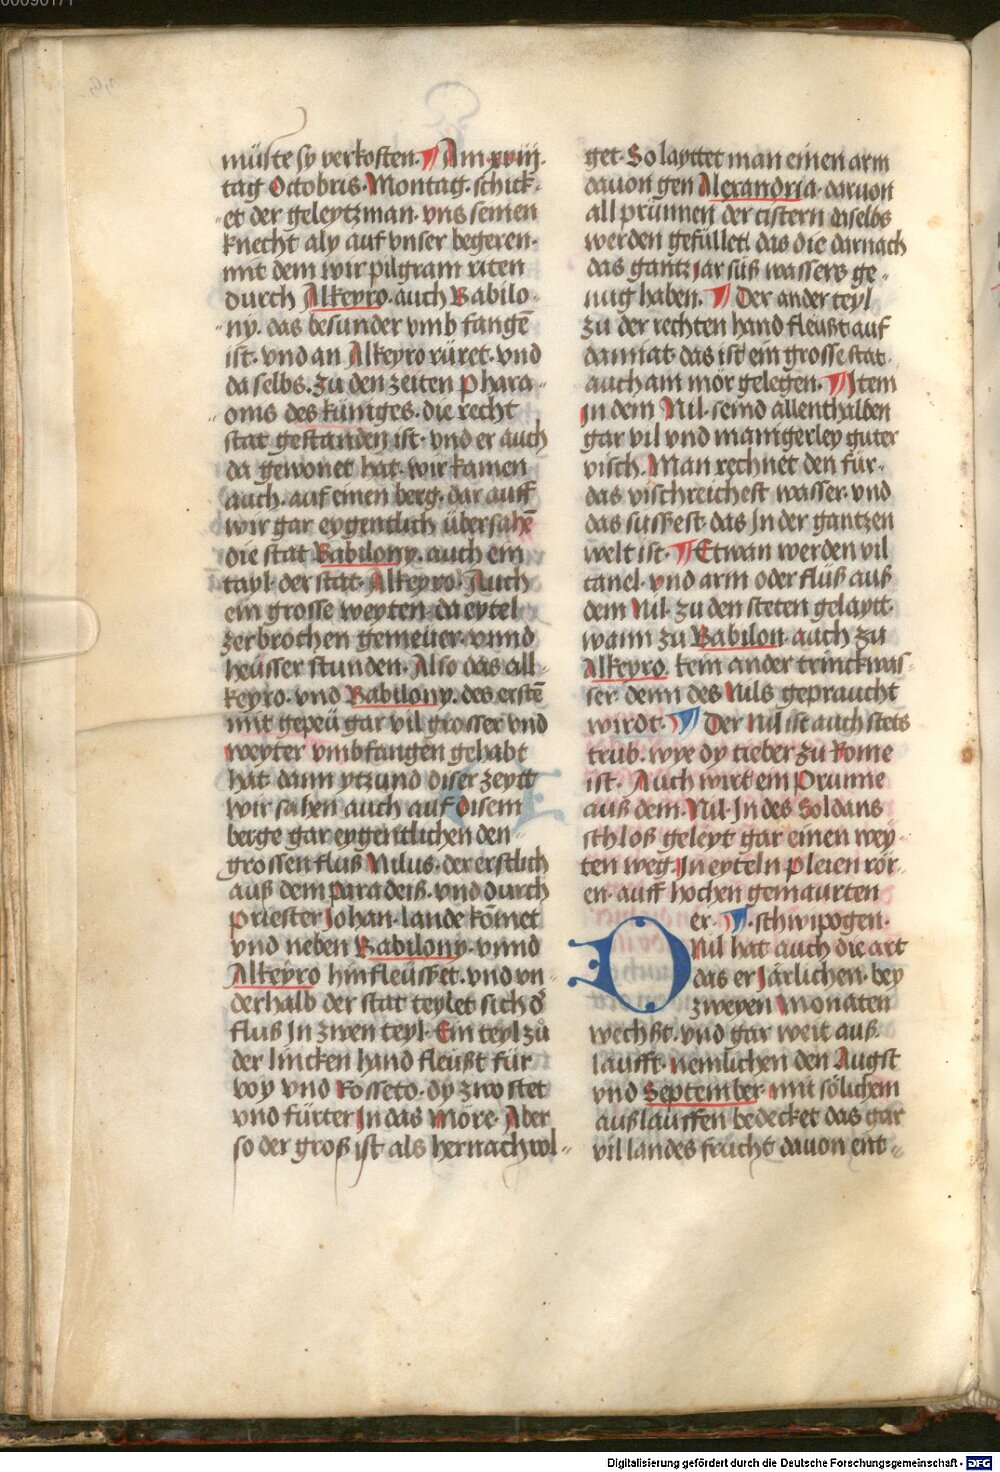 müste sy verkosten. ¶ Am xviij.
tag Octobris. Montag. schick-
et der geleytzman. vns seinen
knecht aly auf vnser begeren.
mit dem wir pilgram riten
durch Alkeyro. auch Babilo-
ny. das besunder vmb fangē
ist. vnd an Alkeyro rüret. vnd
da selbs. zu den zeiten Phara-
onis des küniges. die recht
stat gestanden ist. vnd er auch
da gewonet hat. wir kamen
auch. auf einen berg. dar auff
wir gar eygentlich übersahē
die stat Babilony. auch ein
tayl. der stat. Alkeyro. Auch
ein grosse weyten. da eytel
zerbrochen gemeuer. vnnd
heüsser stunden. Also das all-
keyro. vnd Babilony. des erstē
mit gepeü gar vil grosser vnd
weyter vmbfangen gehabt
hat. dann ytzund diser zeytt
wir sahen auch auf disem
berge gar eygentlichen den
grossen fluß Nilus. der erstlich
auß dem paradeiß. vnd durch
priester Johan. lande kōmet
vnd neben Babilony. vnnd
Alkeyro hin fleüsset. vnd vn
derhalb der stat teylet sich d̄
fluß In zwen teyl. Ein teyl zů
der lincken hand fleüßt für
voy vnd Rosseto. dy zwo stet
vnd fürter In das möre. Aber
so der groß ist als hernach vol-
get. So layttet man einen arm
davon gen Alexandria. daruon
all prünnen der cistern daselbs
werden gefüllet. das die darnach
das gantz jar süß wassers ge-
nug haben. ¶ Der ander teyl
zu der rechten hand fleüßt auf
damiat. das ist ein grosse stat.
auch am mör gelegen. ¶ Item
in dem Nil. seind allenthalben
gar vil vnd manigerley guter
visch. Man rechnet den für.
das vischreichest wasser. vnd
das susssest. das In der gantzen
welt ist. ¶ Etwan werden vil
canel. vnd arm oder flüß auß
dem Nil. zu den steten gelaytt.
wann zu Babilon. auch zu
Alkeyro. kein ander trinckwas-
ser. denn des Nils gepraucht
wirdt. ¶ Der Nil ist auch stets
trub. wye dy tieber zu Rome
ist. Auch wirt ein prunne
auß dem. Nil. In des Soldans
schloß geleyt gar einen wey-
ten weg. In eyteln pleien rör-
en. auff hochen gemaurten
er. ¶. schwipogen.
D Nil hat auch die art
das er Järlichen. bey
zweyen Monaten
wechßt. vnd gar weit auß.
laufft. nemlichen den Augst
vnd September. mit sölichem
außlauffen bedecket das gar
vil landes frücht davon ent-
Digitalisierung gefördert durch die Deutsche Forschungsgemeinschaft - DFG